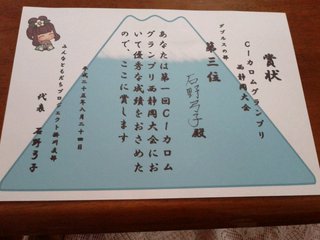 賞状
C1カロムグランプリ
西静岡大会
ダブルスの部
第三位
石野弓子殿
あなたは第一回C1カロム
グランプリ西静岡大会にお
いて優秀な成績をおさめた
ので、ここに賞します
平成二十五年八月二十四日
みんなともだちプロジェクト掛川支部
代表 石野弓子